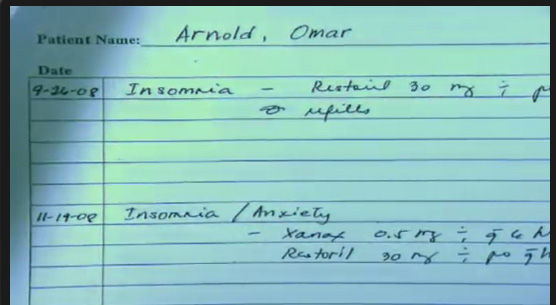 Patient Name: Arnold, Omar
Date
9-26-08 Insomnia - Restoril 30 mg
refills
11-19-08 Insomnia / Anxiety
- Xanax 0.5 mg q 6
Restoril 30 mg po q